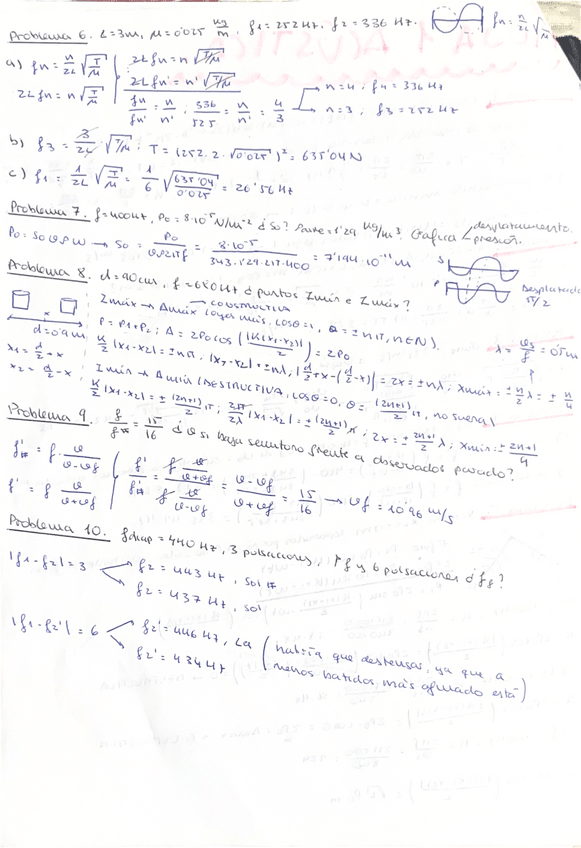 Problema 6. L=3m, μ=0'025 kg/m, f1=252 Hz, f2=336 Hz. fn=n/2L √T/μ
a) fn=n/2L √T/μ 2Lfn=n√T/μ
2Lfn=n√T/μ 2Lfn'=n'√T/μ
fn/fn'=n/n'; 336/525=n/n'=4/3 → n=4, f4=336 Hz
n=3, f3=252 Hz
b) f3=3/2L √T/μ; T=(252·2·√0'025)²=635'04 N
c) f1=1/2L √T/μ=1/6 √635'04/0'025=26'56 Hz
Problema 7. f=400Hz, P0=8·10⁻⁵ N/m² ¿S0? ρaire=1'29 kg/m³. Gráfica desplazamiento, presión.
P0=S0 v ρ w → S0=P0/vρ2πf=8·10⁻⁵/343·1'29·2π·400=7'194·10⁻¹¹ m
S
P
Desplazada π/2
Problema 8. d=90cm, f=680Hz ¿puntos Imin e Imáx?
Imáx → Amáx CONSTRUCTIVA, cosθ=1, θ=±nπ, n∈N)
d=0'9m
P=P1+P2; A=2P0cos(|K(x1-x2)|/2)=2P0
x1=d/2+x K/2|x1-x2|=±nπ, |x1-x2|=±nλ, |d/2+x-(d/2-x)|=2x=±nλ; xmáx=±n/2 λ=±n/4
x2=d/2-x Imin → Amin (DESTRUCTIVA, cosθ=0, θ=(2n+1)/2 π, no suena)
λ=vs/f=0'5m
K/2|x1-x2|=±(2n+1)/2 π; 2π/2λ|x1-x2|=±(2n+1)/2 π; 2x=±2n+1/2 λ; xmin=±2n+1/4
Problema 9. f/f#=15/16 ¿v si baja semitono frente a observador parado?
f'#=f·v/v-vf
f'=f v/v+vf
f'/f'#=f v/v+vf / f v/v-vf=v-vf/v+vf=15/16 → vf=10'96 m/s
Problema 10. fdiap=440 Hz, 3 pulsaciones, ↑f y 6 pulsaciones ¿ff?
|f1-f2|=3 f2=443 Hz, sol #
f2=437 Hz, sol
|f1-f2'|=6 f2'=446 Hz, La
f2'=434 Hz
(habría que destensar, ya que a menos batidos, más afinado está)